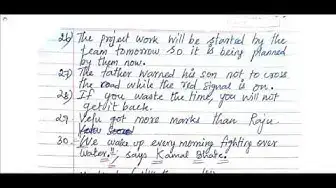 26) The project work will be started by the
team tomorrow so it is being planned
by them now.
27) The father warned his son not to cross
the road while the red signal is on.
28) If you waste the time, you will not
get it back.
29. Velu got more marks than Raju.
30. "We wake up every morning fighting over
water.", says Kamal Bhate.